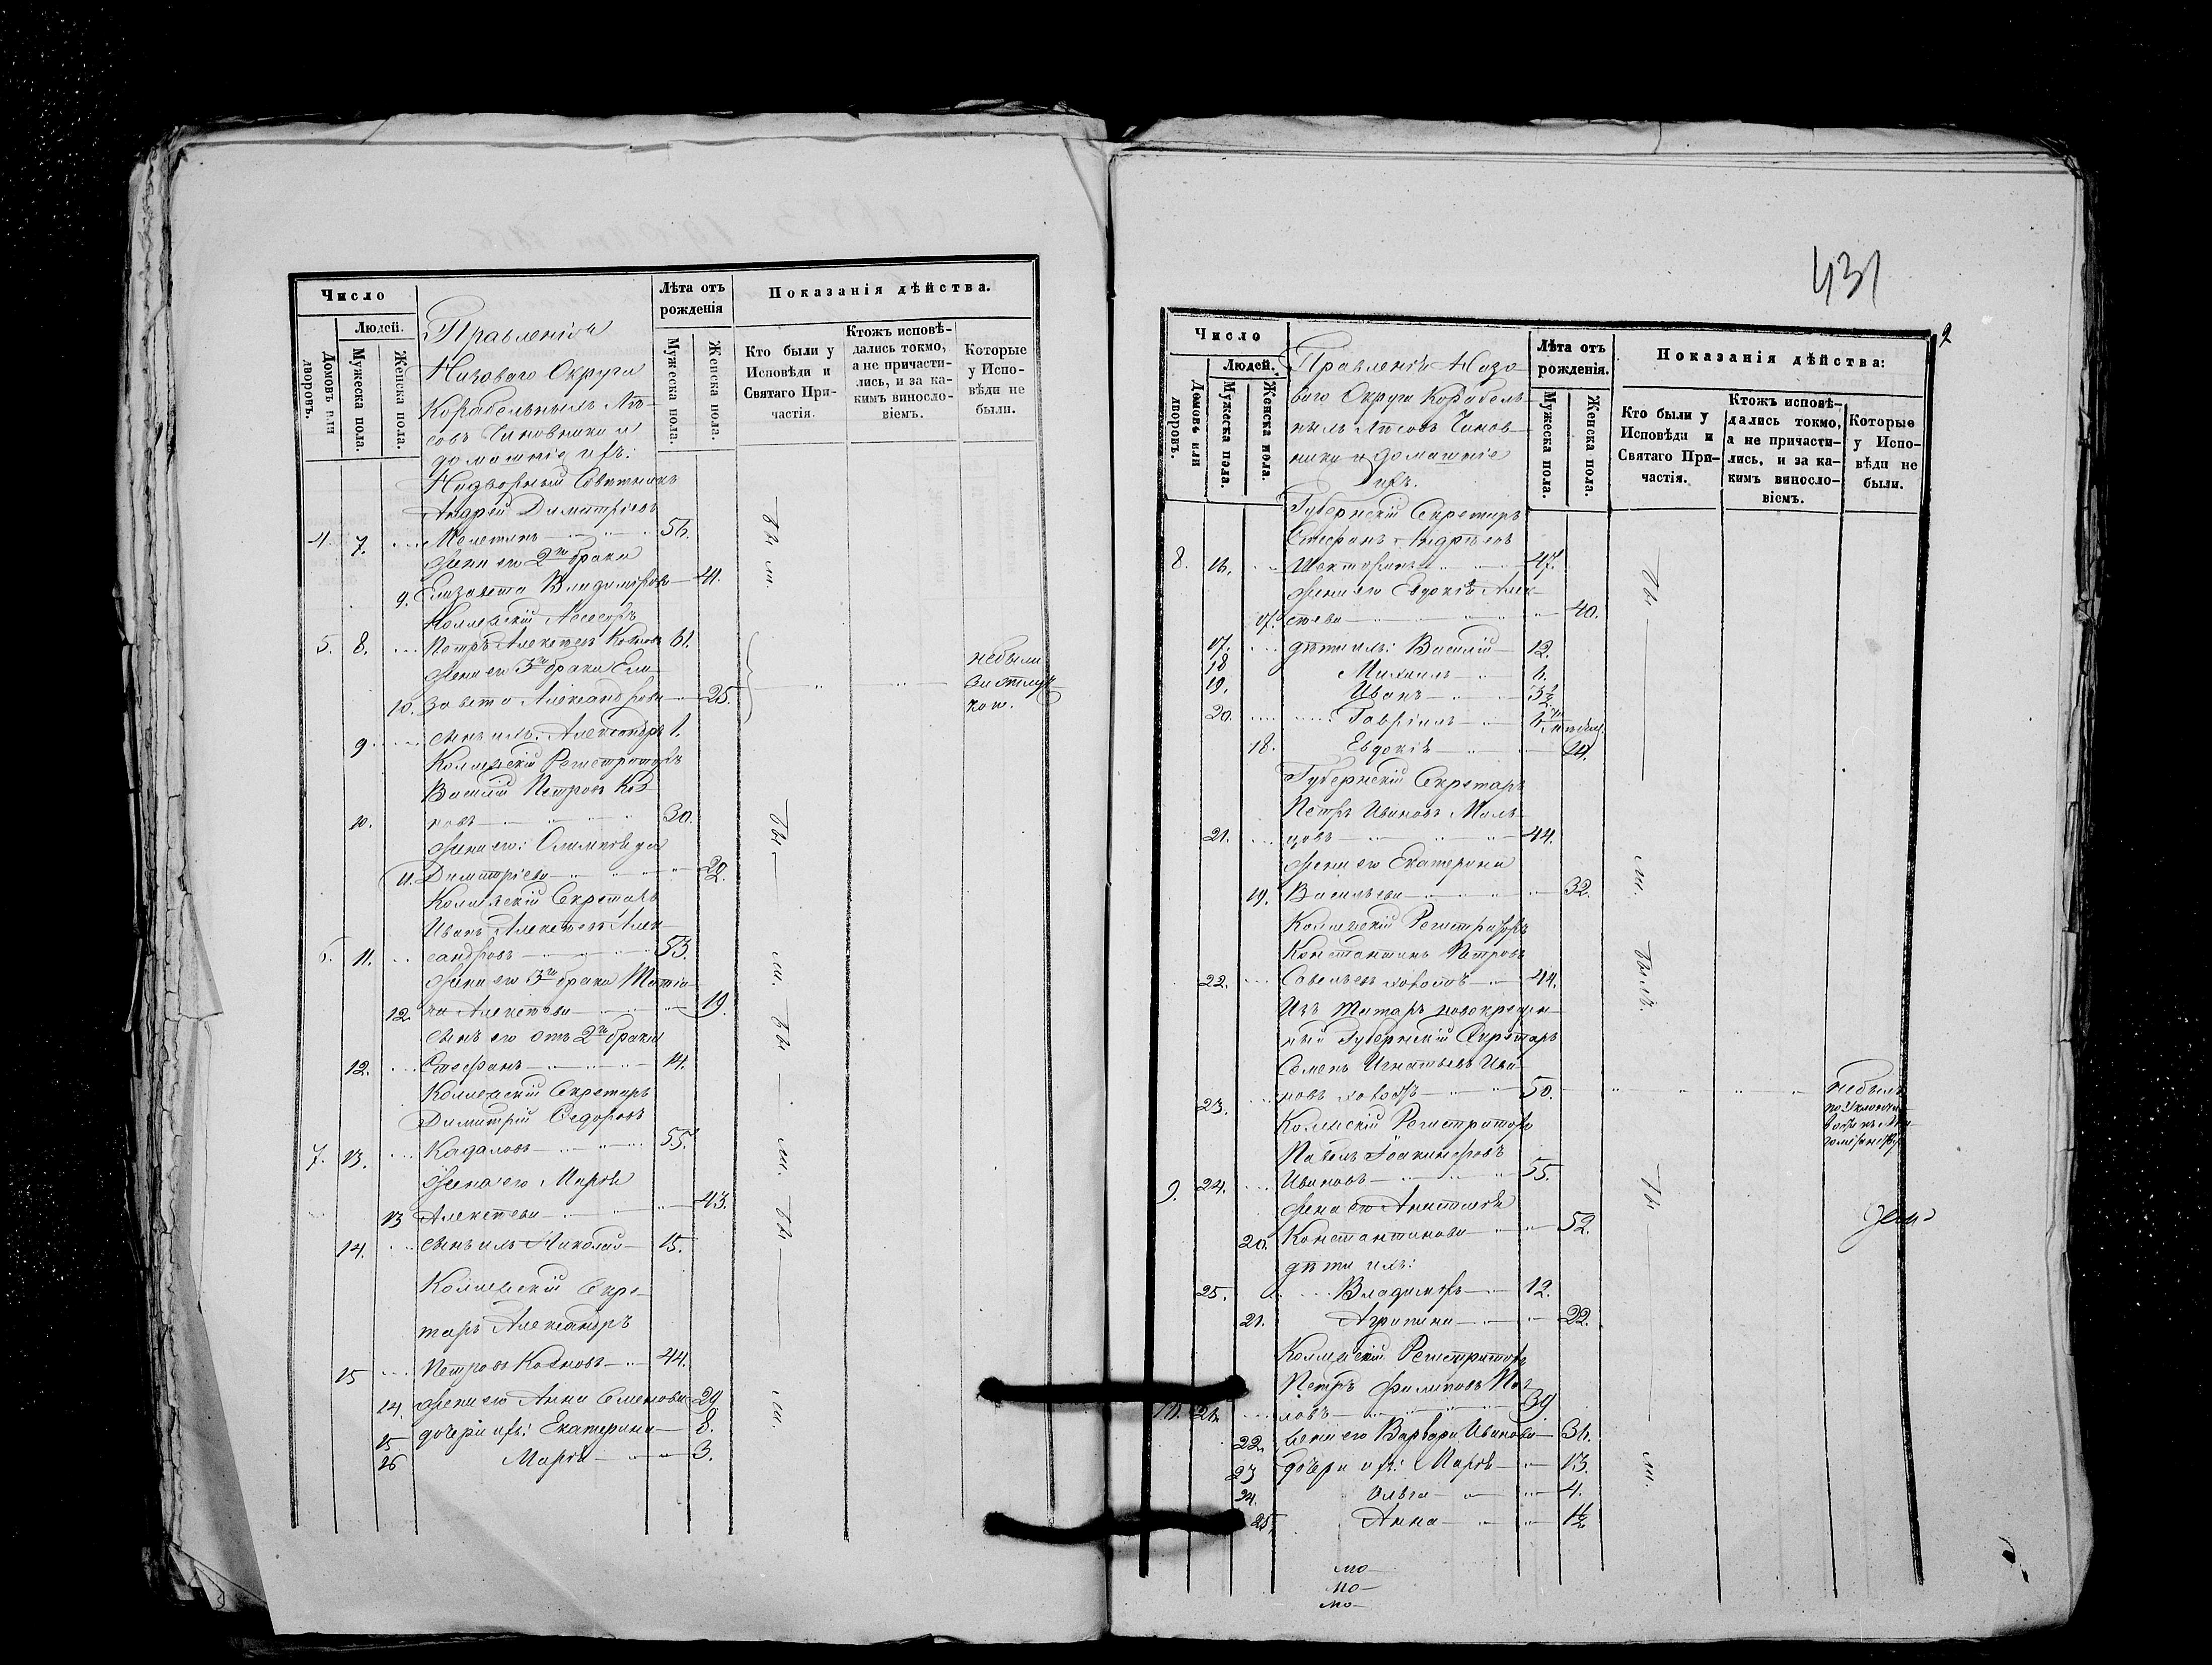 Число
Людей.
Домовъ или дворовъ.
Мужеска пола.
Женска пола.
Правленія
Низоваго Округа
Корабельныхъ Лѣ-
совъ Чиновники и
домашніе ихъ:
Лѣта отъ рожденія
Мужеска пола.
Женска пола.
Показанія дѣйства.
Кто были у Исповѣди и Святаго При-частія.
Ктожъ исповѣ-дались токмо, а не причасти-лись, и за ка-кимъ виносло-віемъ.
Которые у Испо-вѣди не были.
Надворный Совѣтникъ
Андрей Димитріевъ
4. 7. 56.
жена его 2го брака
9. Елизавета Владимірова 41.
Коллежскій Ассесоръ
5. 8. Петръ Алексѣевъ 61.
жена его 3го брака Ели-
10. завета Александрова 25.
небыли
за отлуч-
кою.
9 сынъ ихъ: Александръ 1.
Коллежскій Регистраторъ
Василій Петровъ
10. новъ 30.
жена его: Олимпіада
11. Димитріева 22.
Коллежскій Секретарь
Иванъ Алексѣевъ Алек-
6. 11. сандровъ 53.
жена его 3го брака Татія-
12. на Алексѣева 19.
сынъ его отъ 2го брака
12. Стефанъ 14.
Коллежскій Секретарь
Димитрій Ѳедоровъ
7. 13. Кадаловъ 55.
жена его Марія
13 Алексѣева 43.
14. сынъ ихъ Николай 15.
Коллежскій Секре-
тарь Александръ
15 Петровъ 44.
14. жена его Анна Семенова 29
15 дочери ихъ: Екатерина 8.
16 Марія 3.
бы ли.
431
2
Число
Людей.
Домовъ или дворовъ.
Мужеска пола.
Женска пола.
Правленія Низо-
ваго Округа Корабель-
ныхъ Лѣсовъ Чинов-
ники и домашніе
ихъ.
Лѣта отъ рожденія.
Мужеска пола.
Женска пола.
Показанія дѣйства:
Кто были у Исповѣди и Святаго При-частія.
Ктожъ исповѣ-дались токмо, а не причасти-лись, и за ка-кимъ виносло-віемъ.
Которые у Испо-вѣди не были.
Губернскій Секретарь
Стефанъ Андреевъ
8. 16. 47.
жена его Евдокія Алек-
17. сѣева 40.
17. дѣти ихъ: Василій 12.
18 Михаилъ 6.
19. Иванъ 3½
20. Гавріилъ
18. Евдокія 14.
Губернскій Секретарь
Петръ Ивановъ Маль-
21. цовъ 44.
жена его Екатерина
19. Васильева 32.
Коллежскій Регистраторъ
Константинъ Петровъ
22. Савельевъ холостъ 44.
Изъ татаръ новокрещен-
ный Губернскій Секретарь
Семенъ Игнатьевъ Ива-
23. новъ холостъ 50.
небылъ
Коллежскій Регистраторъ
Павелъ Іоакимовъ
9. 24. Ивановъ 55.
жена его Анастасія
20. Константинова 52.
дѣти ихъ:
25. Владиміръ 12.
21. Агрипина 22.
Коллежскій Регистраторъ
Петръ Филиповъ
10. 26. ловъ 39
22. жена его Варвара Иванова 36.
23 дочери ихъ: Марія 13.
24. Ольга 4.
25. Анна 1½
бы ли.
былъ.
бы ли.